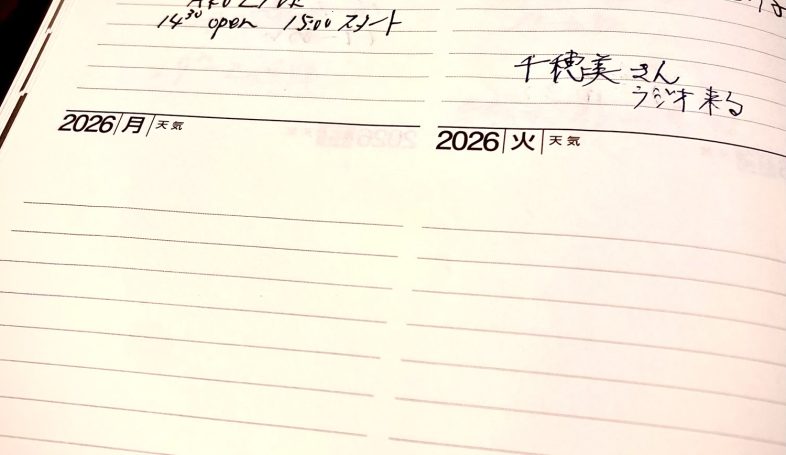 14³⁰ open 15:00 スタート
千穂美さん
ラジオ来る
2026 月 天気
2026 火 天気